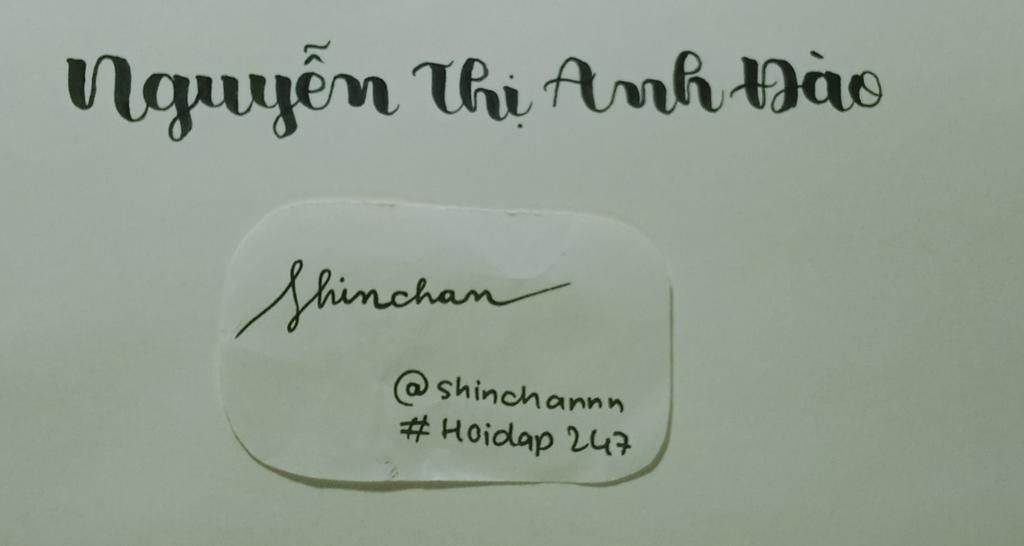 Nguyễn Thị Anh Đào
Shinchan
@shinchannn
# Hoidap 247